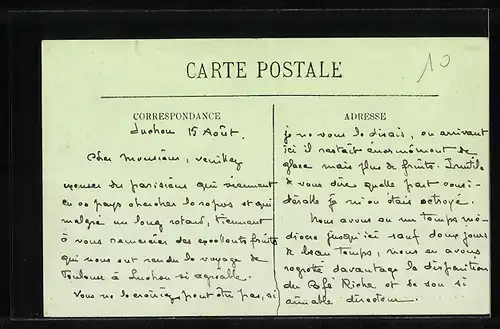 10
CARTE POSTALE
CORRESPONDANCE
Luchon 15 Août.
Cher Monsieur, veuillez
penser du parisiens qui viennent
en ce pays chercher le repos et qui
malgré un long retard, tiennent
à vous remercier des excellents fruits
qui nous ont rendu le voyage de
Toulouse à Luchon si agréable.
Vous ne le croirez peut être pas, si
ADRESSE
je ne vous le disais, en arrivant
ici il restait énormément de
glace mais plus de fruits. Inutile
de vous dire quelle part consi-
dérable je m'en étais octroyé.
Nous avons eu un temps mé-
diocre jusqu'ici sauf deux jours
de beau temps, nous en avons
regretté davantage la disparition
du Café Riche et de son si
aimable directeur.